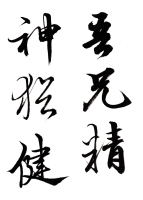 吾兄精
神猶健